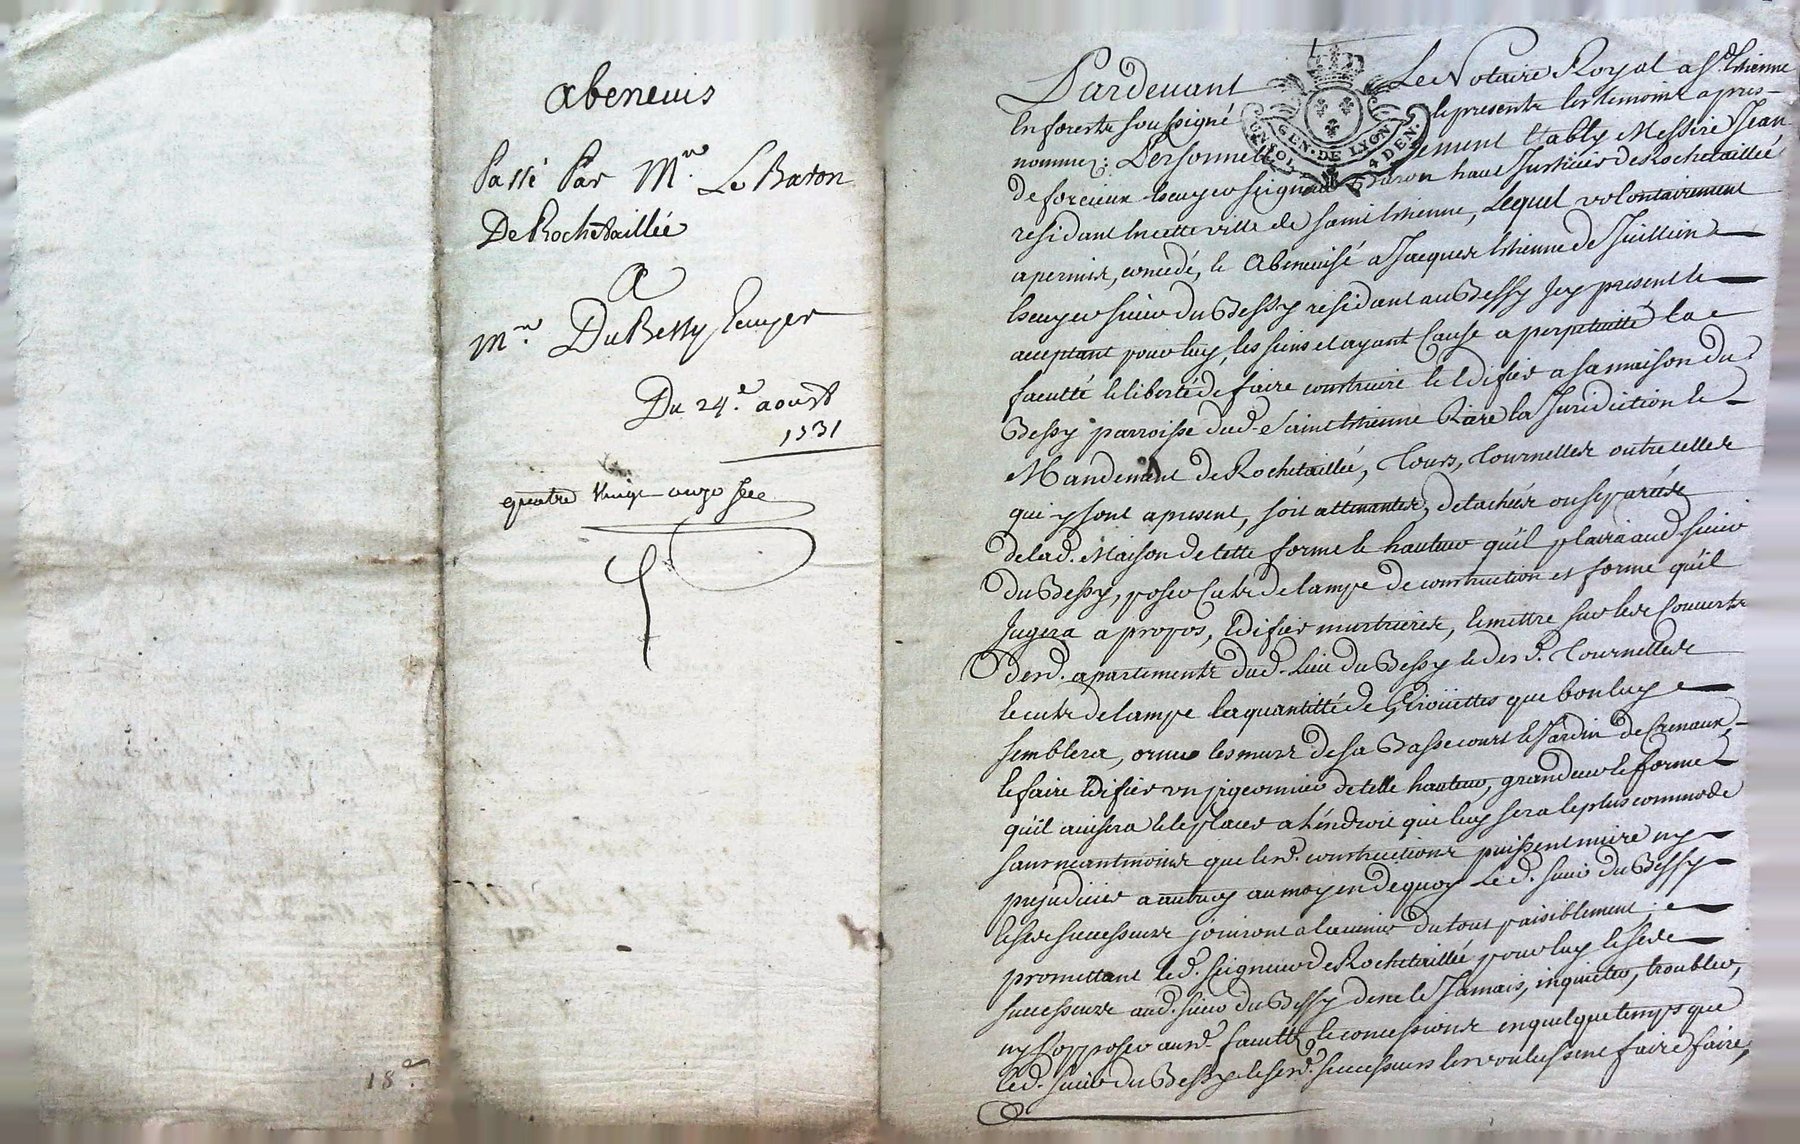 abeneuis
Passé Par Mre. Le Baron
De Rochetaillée
a
Mre. Du Bessy Ecuyer
Du 24e. aoust
1731
quatre vingt onze
18e.
Pardeuant Le Notaire Royal a St. Etienne
En forests soussigné le presents les temoins apres-
nommez: Personnellement Estably Messire Jean
de forcieux Escuyer Seigneur Baron haut Justicier de Rochetaillée
residant En cette ville de saint Etienne, Lequel volontairement
a permis, concedé, Et Abeneuisé a Jacques Etienne de Juillien
Escuyer sieur du Bessy residant au Bessy Jcy present Et
acceptant pour luy, les siens et ayant Cause a perpetuitté La
facultté Et liberté de faire construire Et Edifier a sa maison du
Bessy parroisse dud. Saint Etienne Riere la Juridiction Et
Mandement de Rochetaillée, Tours, Tournelles outre celles
qui y sont apresent, soit attenantes, detachées ou separées
de lad. Maison de telle forme Et hauteur qu'il plaira aud. sieur
du Bessy, poser Culs de lampe de construction et forme qu'il
Jugera a propos, Edifier murtrieres, Et mettre sur les Couverts
Desd. apartements dud. Lieu du Bessy Et desd. Tournelles
Et culs de lampe la quantitté de Girouettes que bon luy
semblera, orner les murs de sa Basse court Et Jardin de Crenaux,
Et faire Edifier un pigeonnier de telle hauteur, grandeur Et forme
qu'il auisera Et le placer a L'endroit qui luy sera le plus commode
sans neantmoins que lesd. constructions puissent nuire ny
prejudicier a autruy au moyen de quoy Led. sieur du Bessy
Et ses successeurs joüiront a L'auenir du tout paisiblement;
promettant led. seigneur de Rochetaillée pour luy Et ses
successeurs aud. sieur du Bessy de ne Le Jamais, inquieter, troubler,
ny s'opposer ausd. facultté Et concessions en quelque temps que
Led. sieur du Bessy Et sesd. successeurs les voulussent faire faire,
GEN. DE LYON
UN SOL 4 DEN.